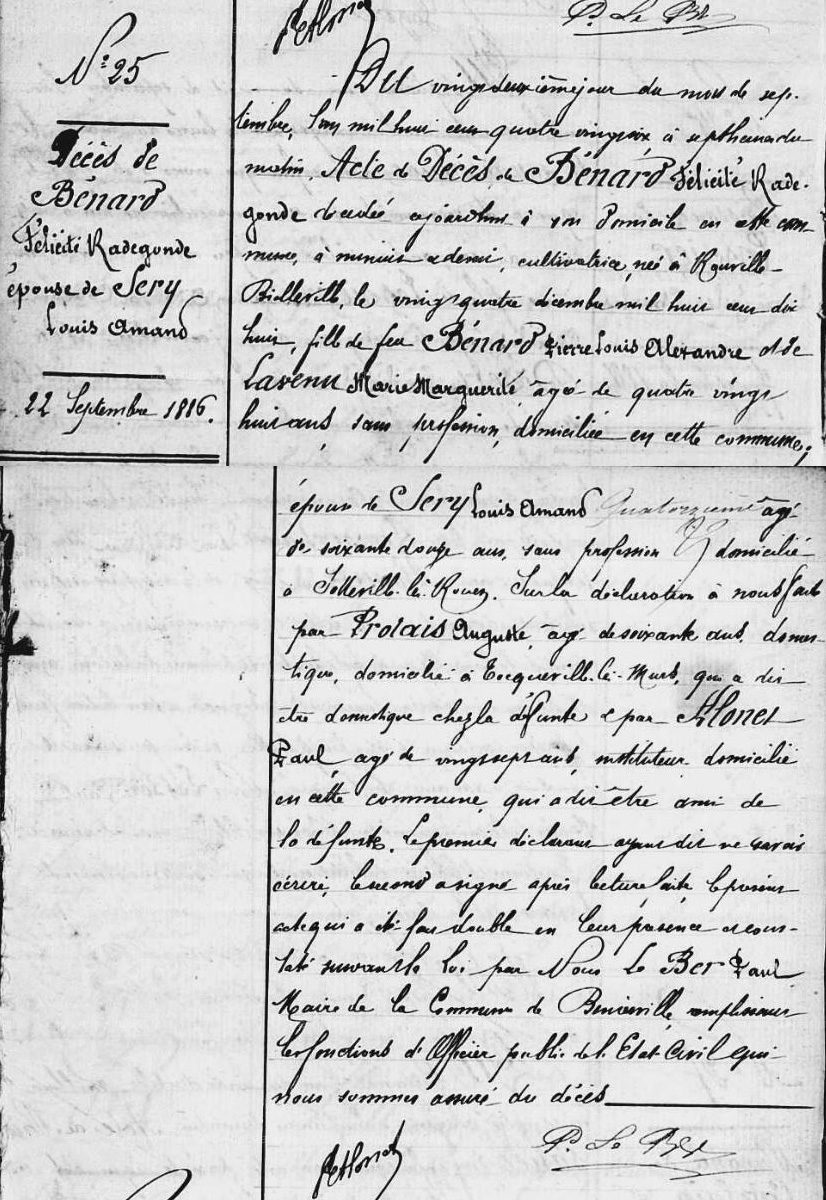 P. Le Ber
N° 25
Décès de
Bénard
Félicité Radegonde
épouse de Sery
Louis Amand
22 Septembre 1886.
Du vingt deuxième jour du mois de sep-
tembre, l'an mil huit cent quatre vingt six, à sept heures du
matin, Acte de Décès de Bénard Félicité Rade-
gonde décédée aujourd'hui à son domicile en cette com-
mune, à minuit et demi, cultivatrice, née à Rouville-
Bielleville, le vingt quatre décembre mil huit cent dix
huit, fille de feu Bénard Pierre Louis Alexandre et de
Lavenu Marie Marguerite, âgée de quatre vingt
huit ans sans profession, domiciliée en cette commune;
épouse de Sery Louis Amand Quatorzième âgé
de soixante douze ans, sans profession domicilié
à Sotteville-lès-Rouen. Sur la déclaration à nous faite
par Prolais Auguste, âgé de soixante ans, domes-
tique, domicilié à Tocqueville-les-Murs, qui a dit
être domestique chez la défunte et par Alonet
Paul, âgé de vingt sept ans, instituteur domicilié
en cette commune, qui a dit être ami de
la défunte. Le premier déclarant ayant dit ne savoir
écrire, le second a signé après lecture faite, le présent
acte qui a été fait double en leur présence et cons-
taté suivant la loi par Nous Le Ber Paul
Maire de la Commune de Bénarville, remplissant
les fonctions d'Officier public de l'Etat-Civil qui
nous sommes assuré du décès
P. Le Ber